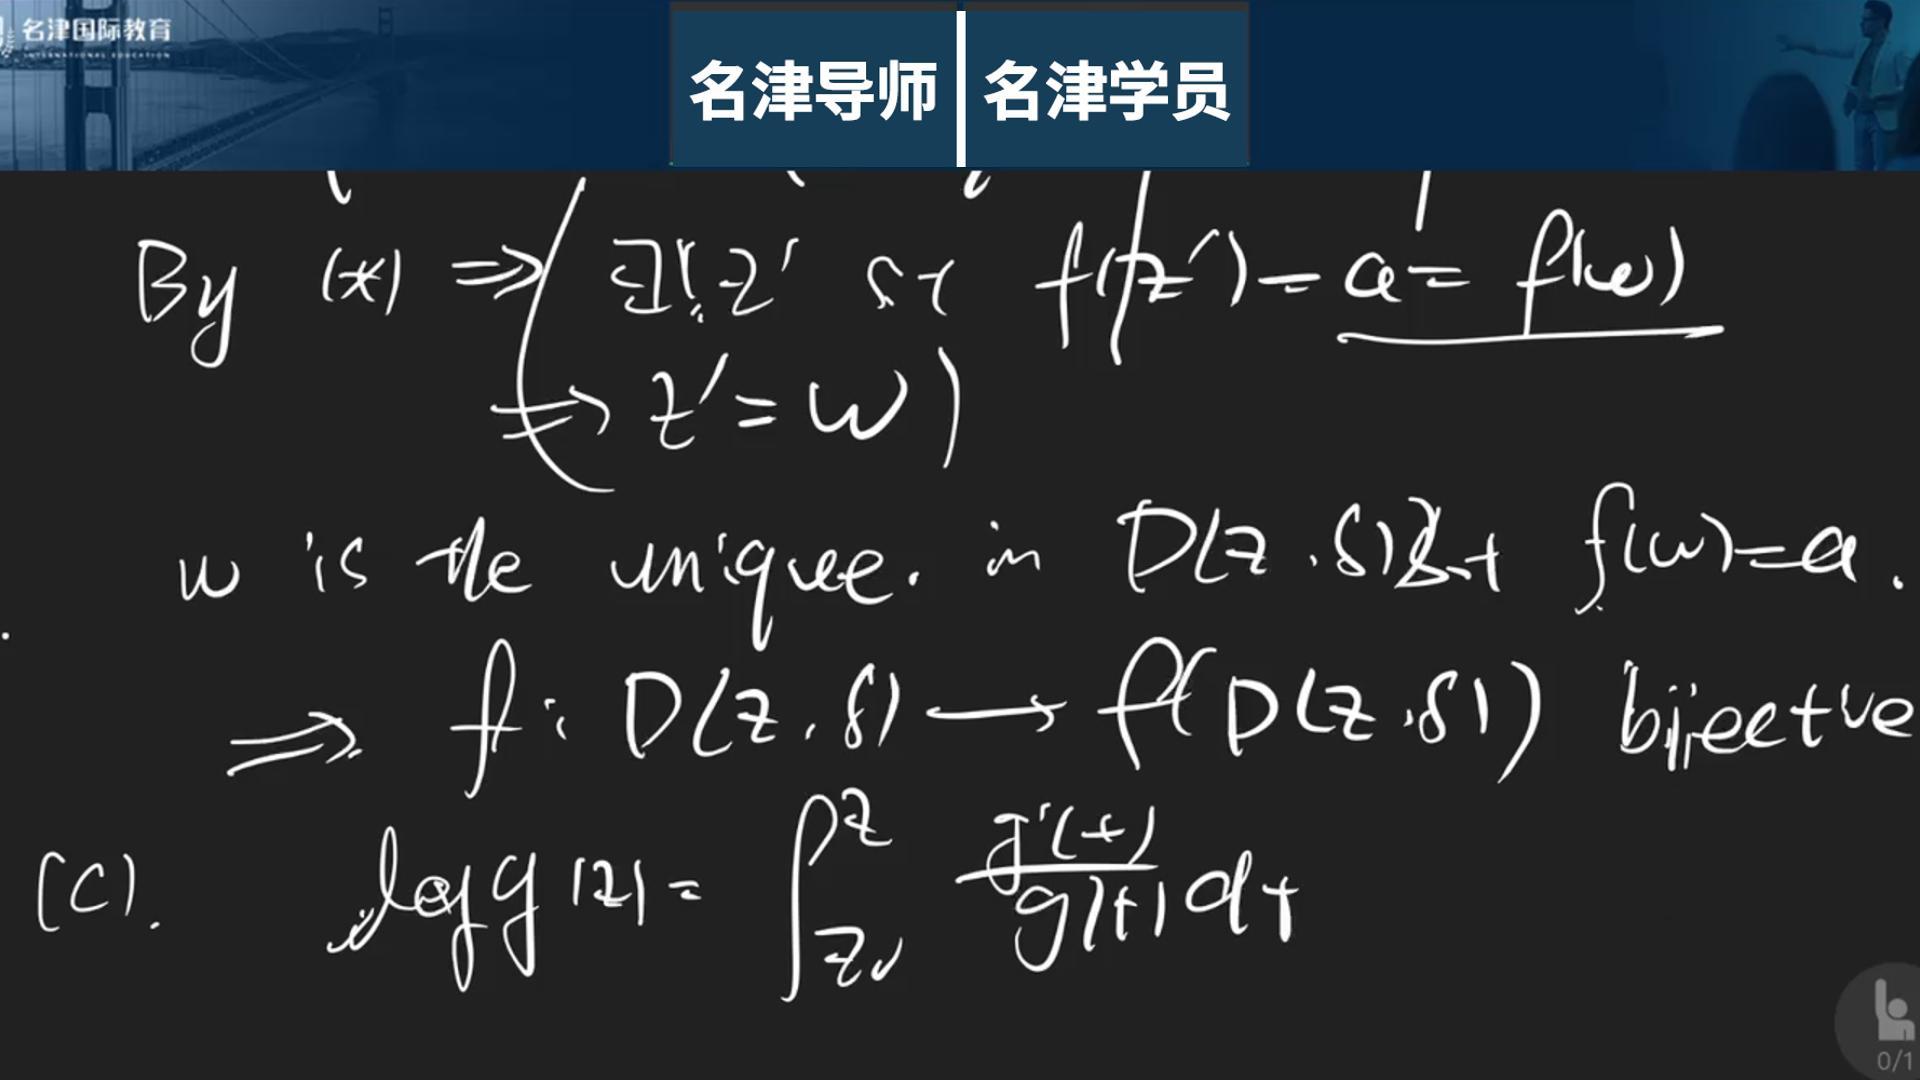 名津国际教育
INTERNATIONAL EDUCATION
名津导师 名津学员
By (*) ⇒ ( ∃! z' st f(z') = a = f(w)
⇒ z' = w )
w is the unique. in D(z, δ) s.t f(w) = a.
⇒ f: D(z, δ) → f(D(z, δ)) bijective
(C). log g(z) = ∫_{z₀}^{z} g'(t)/g(t) dt
0/1